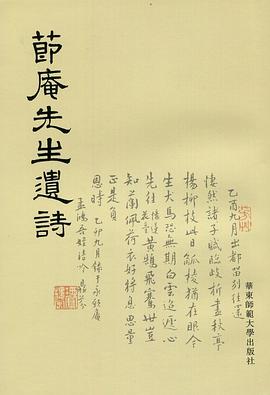 節庵先生遺詩
乙酉九月出都留別往還
悽然諸子賦臨歧折盡秋亭
楊柳枝此日觚棱猶在眼今
生犬馬恐無期白雲迢遞心
先往黃鵠飛騫世豈
知蘭佩荷衣好將息思量
正是負
恩時 乙卯九月錄
鼎芬
華東師範大學出版社